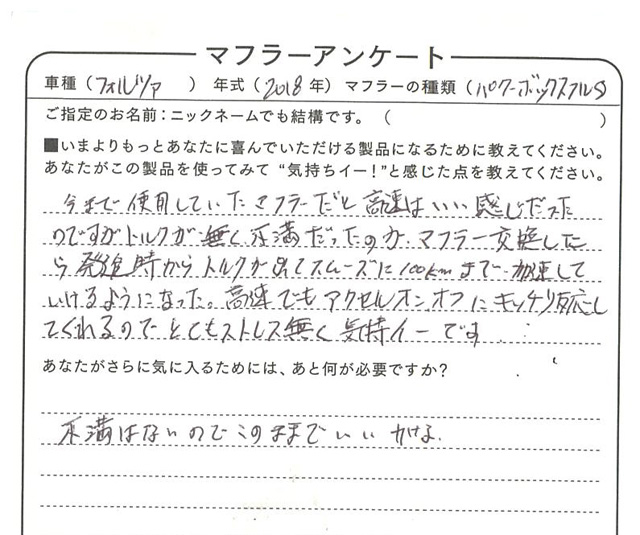 マフラーアンケート
車種（フォルツァ　） 年式（2018年） マフラーの種類（パワーボックスフルS
ご指定のお名前：ニックネームでも結構です。（　　　）
■いまよりもっとあなたに喜んでいただける製品になるために教えてください。
あなたがこの製品を使ってみて“気持ちイー！”と感じた点を教えてください。
今まで使用していたマフラーだと高速はいい感じだった
のですがトルクが無く不満だったのが、マフラー交換した
ら発進時からトルクが出てスムーズに100kmまで加速して
いけるようになった。高速でもアクセルオン、オフにキッチリ反応し
てくれるのでとてもストレス無く気持イーです
あなたがさらに気に入るためには、あと何が必要ですか？
不満はないのでこのままでいい